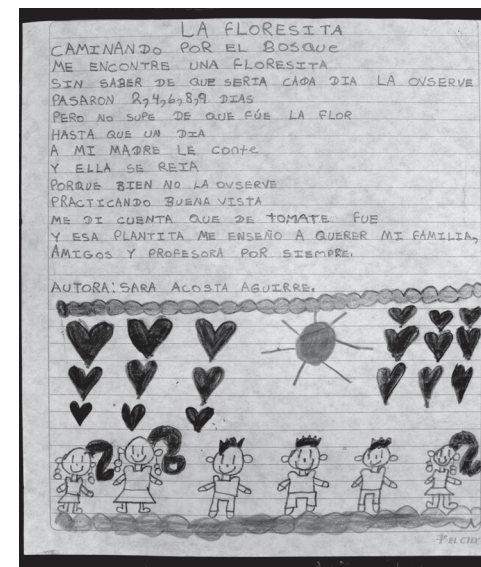 LA FLORESITA
CAMINANDO POR EL BOSQUE
ME ENCONTRE UNA FLORESITA
SIN SABER DE QUE SERIA CADA DIA LA OVSERVE
PASARON 2,4,6,8,9 DIAS
PERO NO SUPE DE QUE FÚE LA FLOR
HASTA QUE UN DIA
A MI MADRE LE conte
Y ELLA SE REIA
PORQUE BIEN NO LA OVSERVE
PRACTICANDO BUENA VISTA
ME DI CUENTA QUE DE TOMATE FUE
Y ESA PLANTITA ME ENSEÑO A QUERER MI FAMILIA,
AMIGOS Y PROFESORA POR SIEMPRE.
AUTORA: SARA ACOSTA AGUIRRE.
EL CID